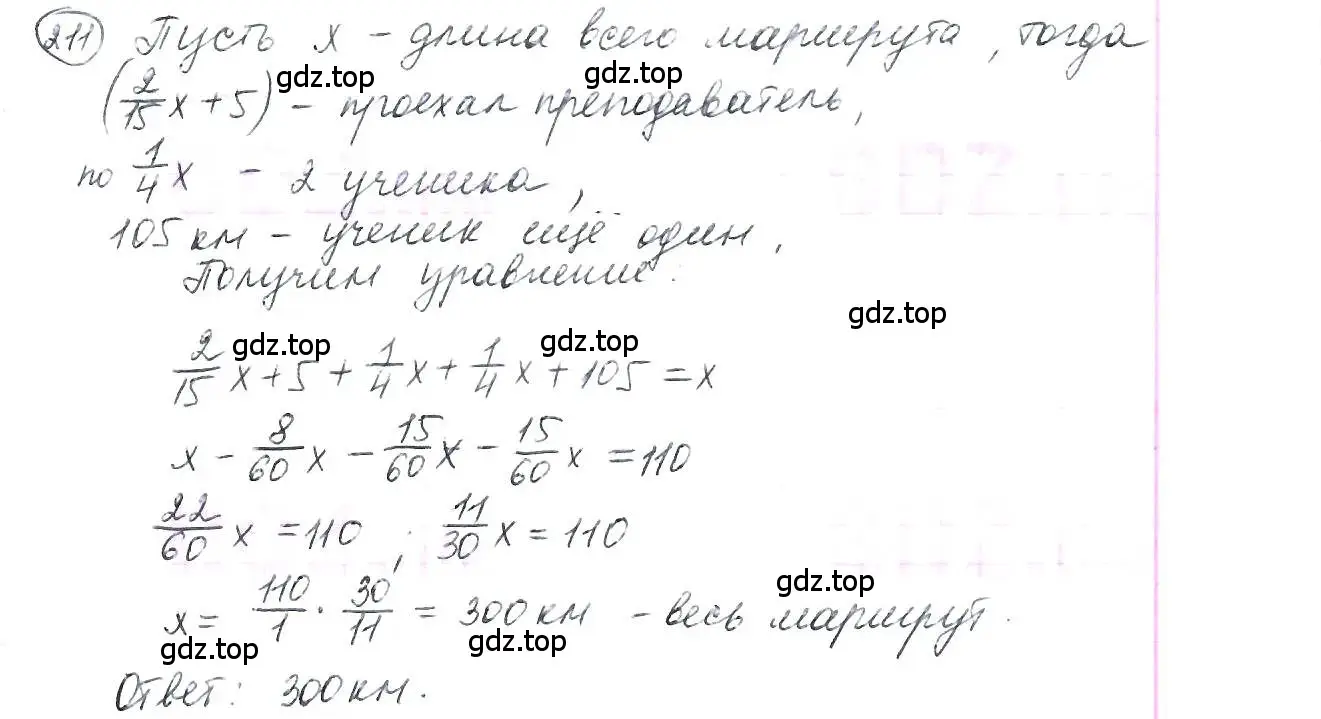 211 Пусть x – длина всего маршрута, тогда
gdz.top gdz.top
(2/15 x + 5) – проехал преподаватель,
по 1/4 x – 2 ученика,
105 км – ученик ещё один,
Получим уравнение:
gdz.top
gdz.top gdz.top
2/15 x + 5 + 1/4 x + 1/4 x + 105 = x
x – 8/60 x – 15/60 x – 15/60 x = 110
22/60 x = 110 ; 11/30 x = 110
gdz.top
x = 110/1 · 30/11 = 300 км – весь маршрут.
gdz.top gdz.top
Ответ: 300 км.